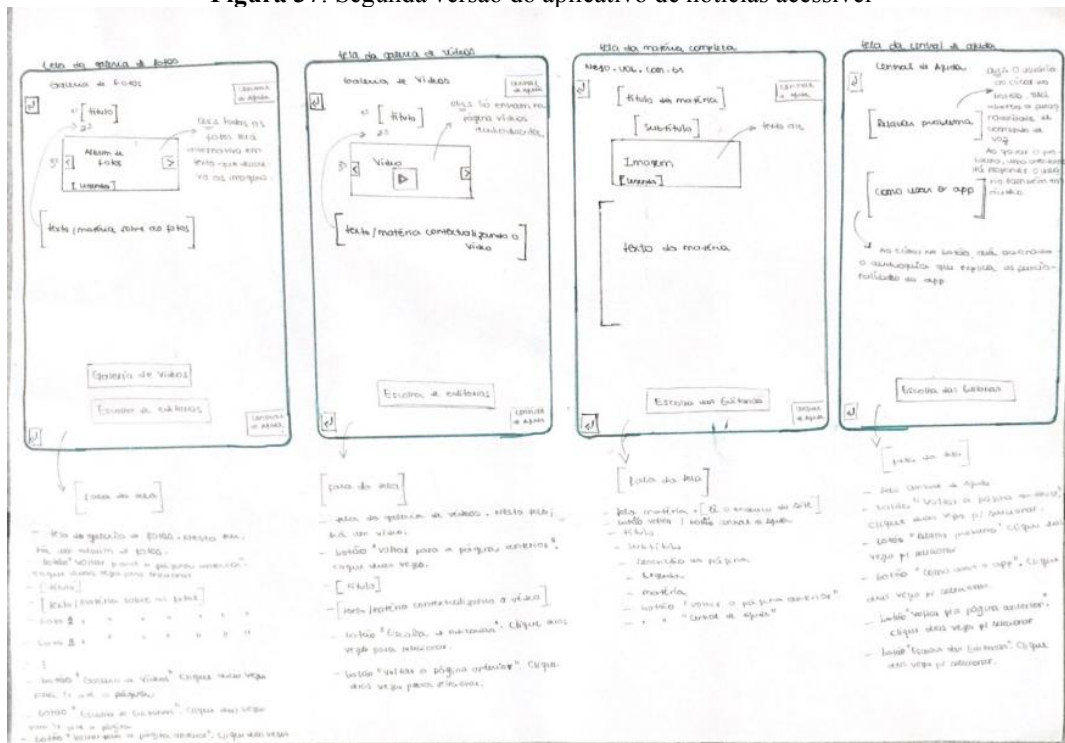 Figura 37. Segunda versão do aplicativo de notícias acessível
tela da galeria de fotos
Galeria de Fotos
central de ajuda
1º [título]
2º
3º
Álbum de fotos
[Legenda]
obs: todas as
fotos terá
alternativa em
texto que descre-
va as imagens.
[texto/matéria sobre as fotos]
Galeria de vídeos
Escolha de editorias
central de ajuda
[fala da tela]
- tela da galeria de fotos. Nesta tela,
há um álbum de fotos.
- botão "voltar para a página anterior".
clique duas vezes para selecionar
- [título]
- [texto/matéria sobre as fotos]
- botão "Galeria de Vídeos". Clique duas vezes
para ir até a página.
- botão "Escolha de Editorias". Clique duas vezes
para ir até a página
- botão "voltar para a página anterior". Clique duas vezes
tela da galeria de vídeos
Galeria de Vídeos
central de ajuda
1º [título]
2º
3º
Vídeo
obs: Só entram na
página vídeos
audiodescritos.
[texto/matéria contextualizando o
vídeo]
Escolha de editorias
central de ajuda
[fala da tela]
- tela da galeria de vídeos. Nesta tela,
há um vídeo.
- botão "voltar para a página anterior".
clique duas vezes.
- [título]
- [texto/matéria contextualizando o vídeo]
- botão "Escolha de editorias". Clique duas
vezes para selecionar.
- botão "voltar a página anterior". Clique
duas vezes para selecionar.
tela da matéria completa
central de ajuda
[título da matéria]
[subtítulo]
Imagem
[Legenda]
texto da matéria
Escolha das Editorias
central de ajuda
[fala da tela]
- tela matéria. [lê o endereço do site]
- botão voltar / botão central de ajuda
- título
- subtítulo
- descrição da página
- legenda
- matéria
- botão "voltar a página anterior"
- " " "Central de ajuda"
tela da central de ajuda
Central de Ajuda
[Relatar problema]
[como usar o app]
→ Ao clicar no botão, será acionado
o audioguia que explica as funcio-
nalidades do app.
Escolha das Editorias
[fala da tela]
- tela Central de Ajuda
- botão "voltar à página anterior".
Clique duas vezes p/ selecionar
- botão "Relatar problema". Clique duas
vezes p/ selecionar
- botão "Como usar o app". Clique
duas vezes p/ selecionar.
- botão "voltar p/a página anterior".
clique duas vezes p/ selecionar
- botão "Escolha das Editorias". Clique
duas vezes p/ selecionar.